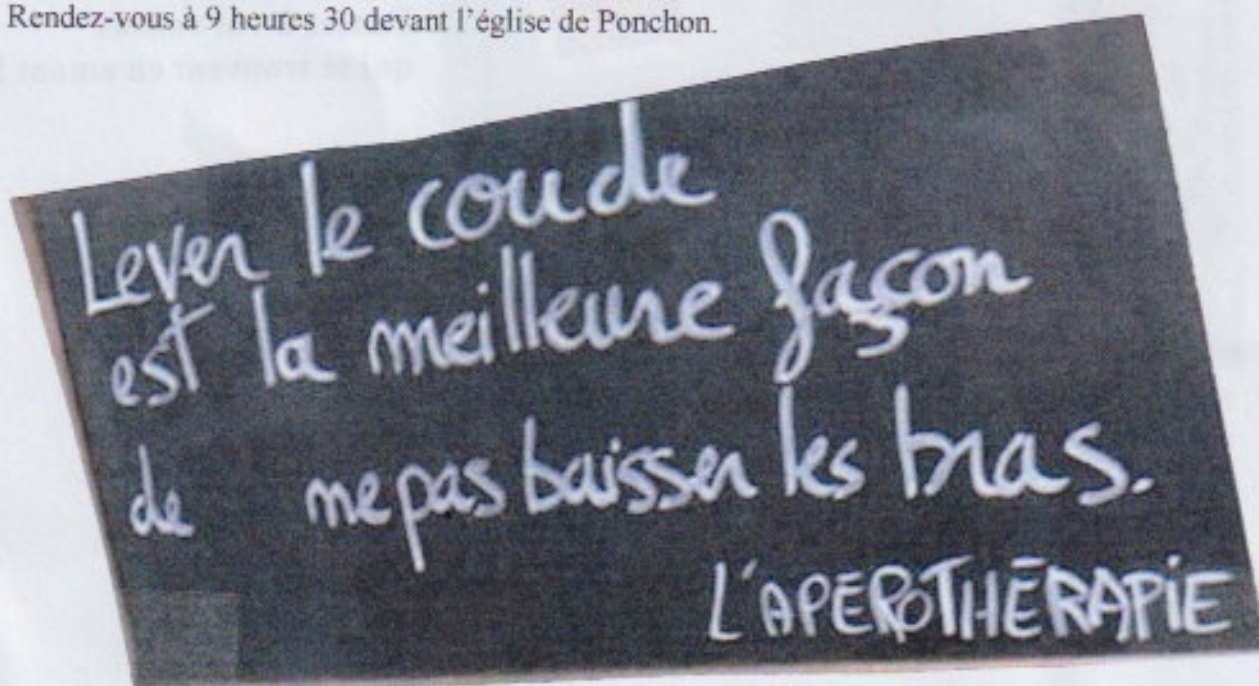 Rendez-vous à 9 heures 30 devant l'église de Ponchon.
Lever le coude
est la meilleure façon
de ne pas baisser les bras.
L'APÉROTHÉRAPIE